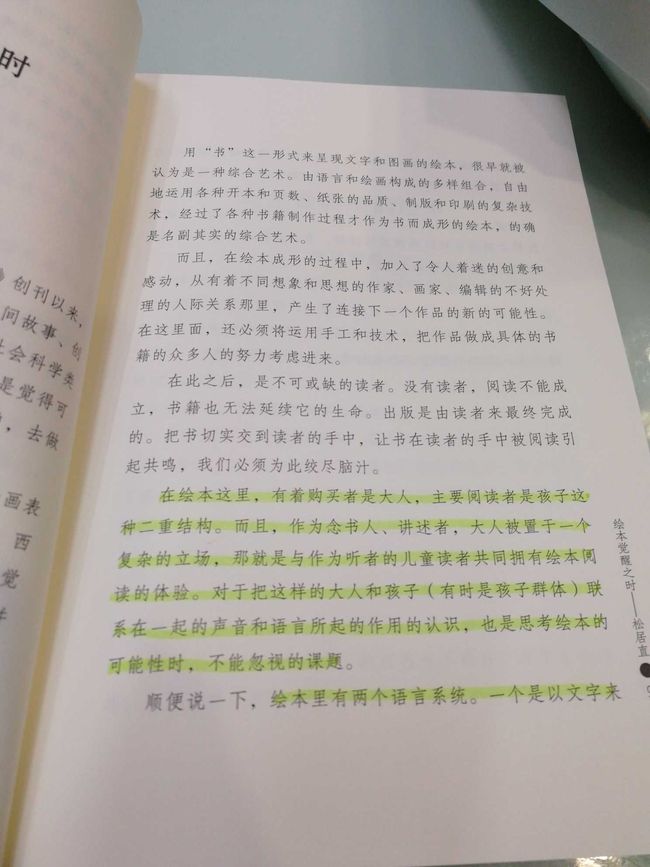 时
》创刊以来,
间故事、创
社会科学类
是觉得可
去做
画表
西
觉
用“书”这一形式来呈现文字和图画的绘本，很早就被
认为是一种综合艺术。由语言和绘画构成的多样组合，自由
地运用各种开本和页数、纸张的品质、制版和印刷的复杂技
术，经过了各种书籍制作过程才作为书而成形的绘本，的确
是名副其实的综合艺术。
而且，在绘本成形的过程中，加入了令人着迷的创意和
感动，从有着不同想象和思想的作家、画家、编辑的不好处
理的人际关系那里，产生了连接下一个作品的新的可能性。
在这里面，还必须将运用手工和技术，把作品做成具体的书
籍的众多人的努力考虑进来。
在此之后，是不可或缺的读者。没有读者，阅读不能成
立，书籍也无法延续它的生命。出版是由读者来最终完成
的。把书切实交到读者的手中，让书在读者的手中被阅读引
起共鸣，我们必须为此绞尽脑汁。
在绘本这里，有着购买者是大人，主要阅读者是孩子这
种二重结构。而且，作为念书人、讲述者，大人被置于一个
复杂的立场，那就是与作为听者的儿童读者共同拥有绘本阅
读的体验。对于把这样的大人和孩子（有时是孩子群体）联
系在一起的声音和语言所起的作用的认识，也是思考绘本的
可能性时，不能忽视的课题。
顺便说一下，绘本里有两个语言系统。一个是以文字来
绘本觉醒之时——松居直